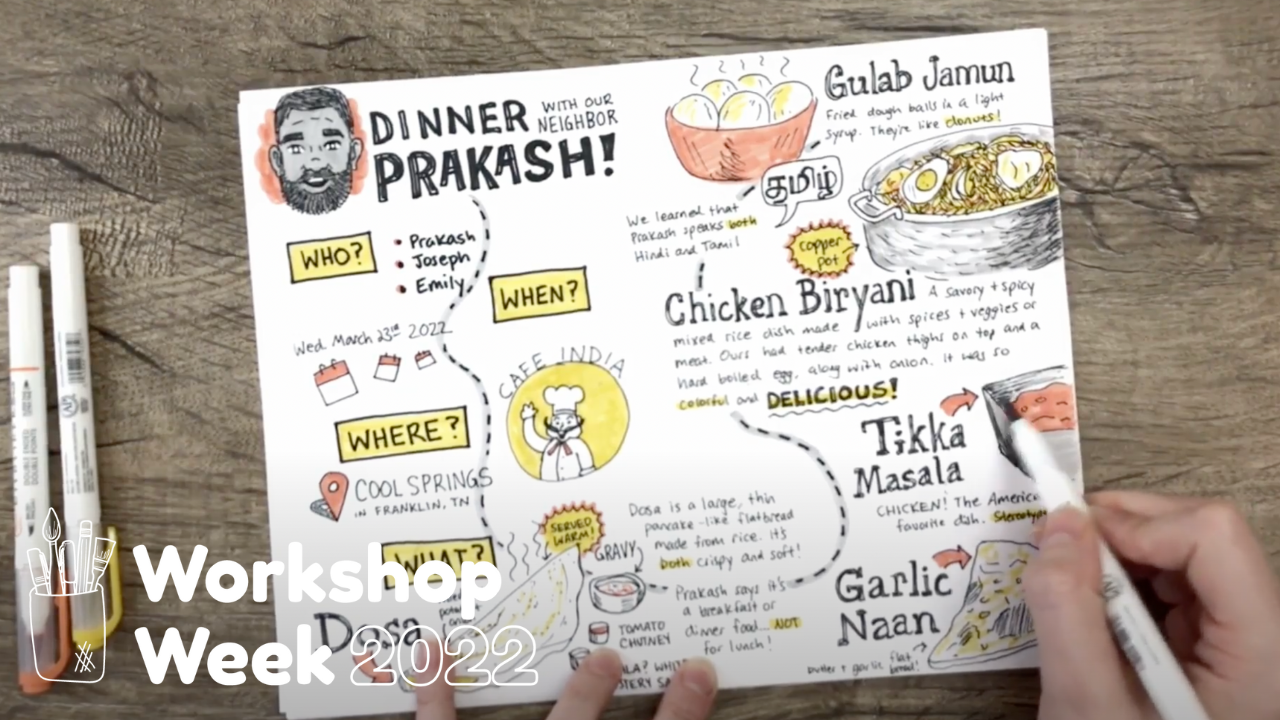 DINNER WITH OUR
NEIGHBOR
PRAKASH!
WHO?
• Prakash
• Joseph
• Emily
WHEN?
Wed. March 23rd 2022
CAFE INDIA
WHERE?
COOL SPRINGS
IN FRANKLIN, TN
WHAT?
Dosa
SERVED
WARM!
GRAVY
TOMATO
CHUTNEY
Dosa is a large, thin
pancake-like flatbread
made from rice. It's
both crispy and soft!
Prakash says it's
a breakfast or
dinner food... NOT
for lunch!
Gulab Jamun
Fried dough balls in a light
syrup. They're like donuts!
தமிழ்
We learned that
Prakash speaks both
Hindi and Tamil
copper
pot
Chicken Biryani
A savory + spicy
mixed rice dish made with spices + veggies or
meat. Ours had tender chicken thighs on top and a
hard boiled egg, along with onion. It was so
colorful and DELICIOUS!
Tikka
Masala
CHICKEN! The America
favorite dish.
Garlic
Naan
butter + garlic flat
bread!
Workshop
Week 2022